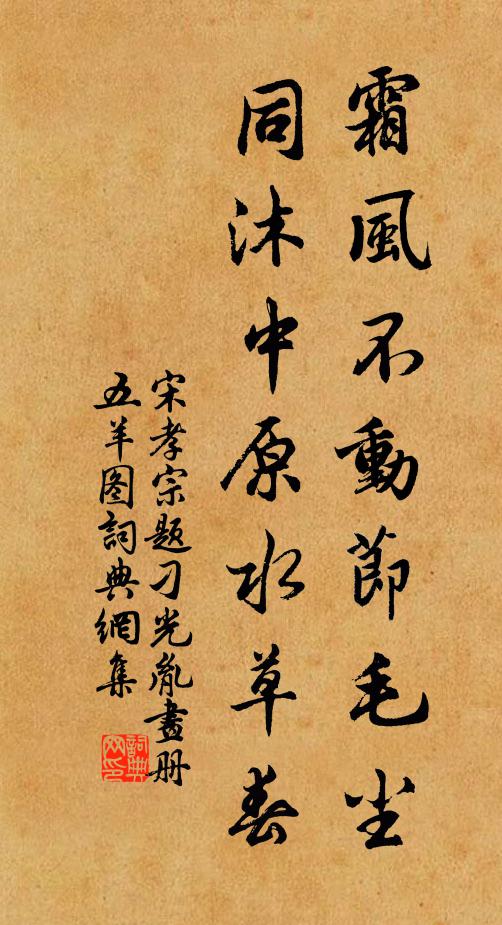 霜風不動節毛尘
同沐中原水草春
宋孝宗题刁光胤畫册
五羊图詞典網集
詞典网印